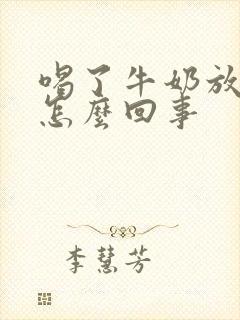 喝了牛奶放
怎麼回事
李慧芳